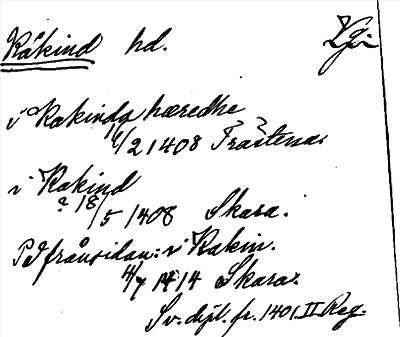 Kåkind hd. Vgl
i Kakinds hæredhe
16/2 1408 Frastena.
i Kakind
? 18/5 1408 Skara.
På frånsidan: i Kakin.
4/7 1414 Skara.
Sv. dipl. fr. 1401. II Reg.